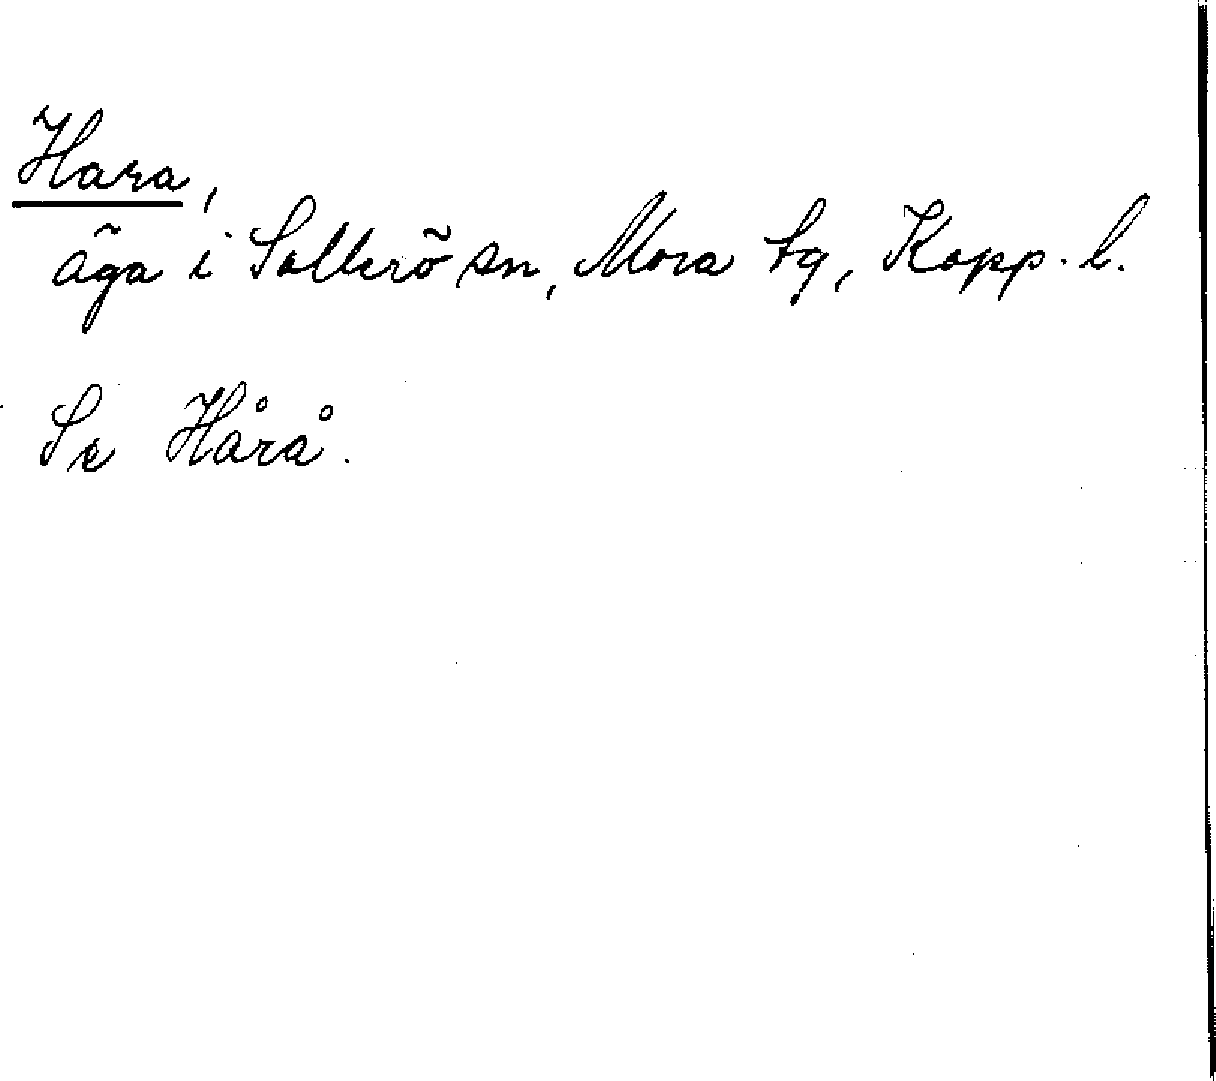 Hara,
äga i Sollerö sn, Mora tg, Kopp. l.
Se Hårå.